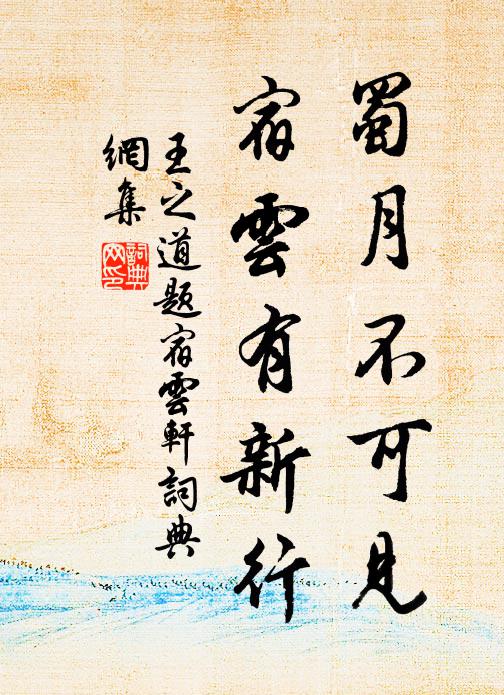 蜀月不可見
宿雲有新行
王之道題宿雲軒詞典
網集
詞典
网印